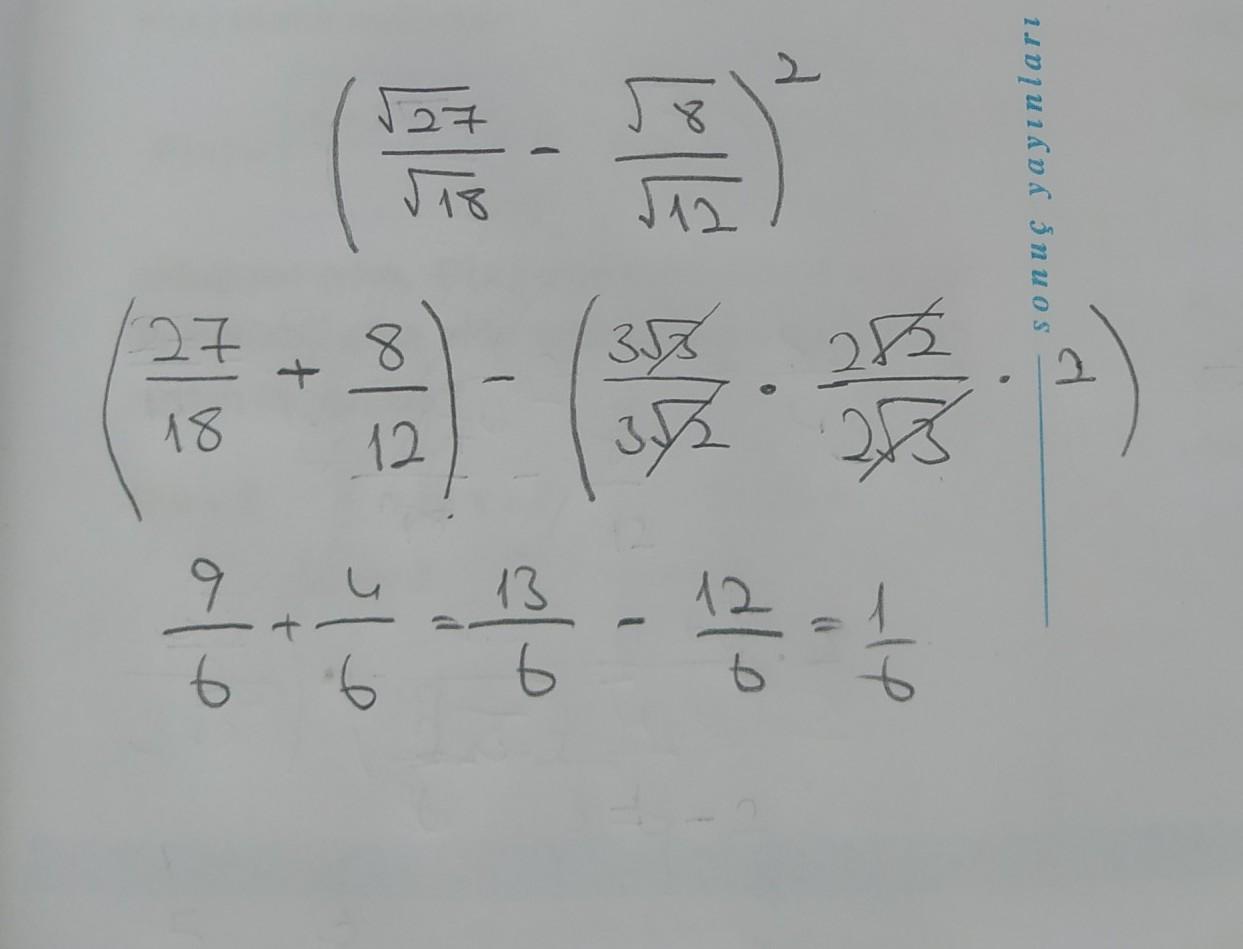 (√27/√18 - √8/√12)²
(27/18 + 8/12) - (3√3/3√2 · 2√2/2√3 · 2)
9/6 + 4/6 = 13/6 - 12/6 = 1/6
sonuç yayınları